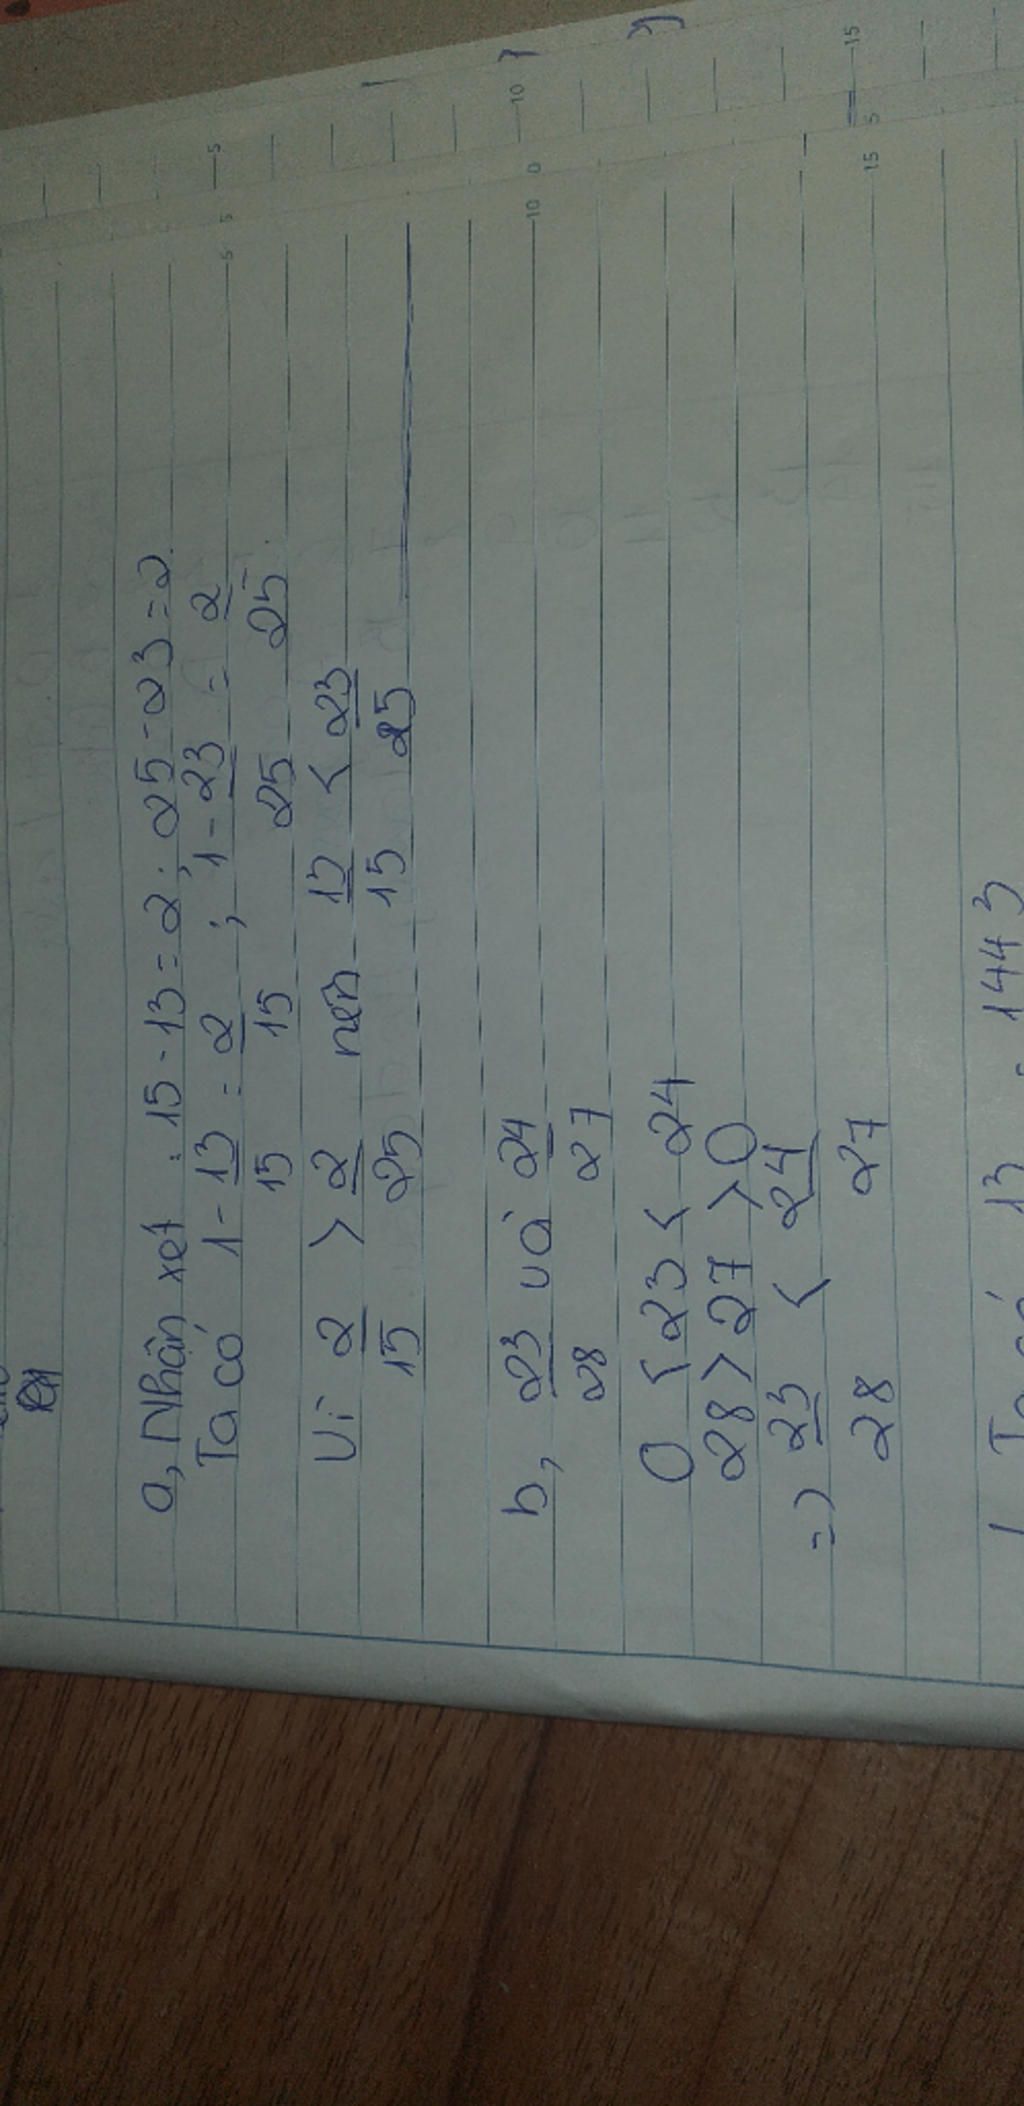 a, Nhận xét : 15 - 13 = 2 ; 25 - 23 = 2.
Ta có 1 - 13/15 = 2/15 ; 1 - 23/25 = 2/25.
Vì 2/15 > 2/25 nên 13/15 < 23/25
b, 23/28 và 24/27
0 < 23 < 24
28 > 27 > 0
=> 23/28 < 24/27
Ta có 13 1443